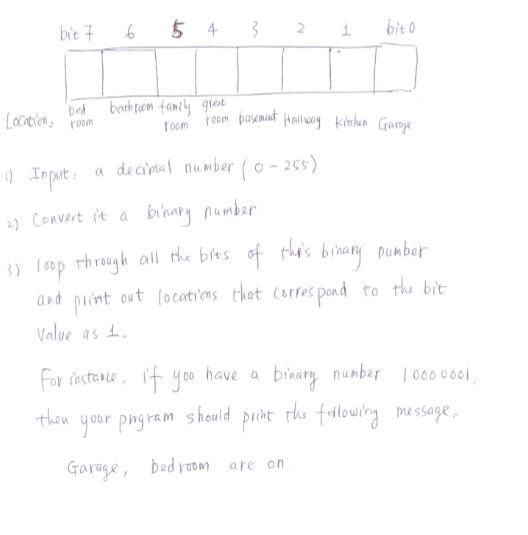 bit 7 6 5 4 3 2 1 bit 0
Location: bed room bathroom family room great room basement Hallway Kitchen Garage
1) Input: a decimal number (0-255)
2) Convert it a binary number
3) loop through all the bits of this binary number
and print out locations that correspond to the bit
Value as 1.
For instance, if you have a binary number 10000001,
then your program should print the following message.
Garage, bedroom are on.